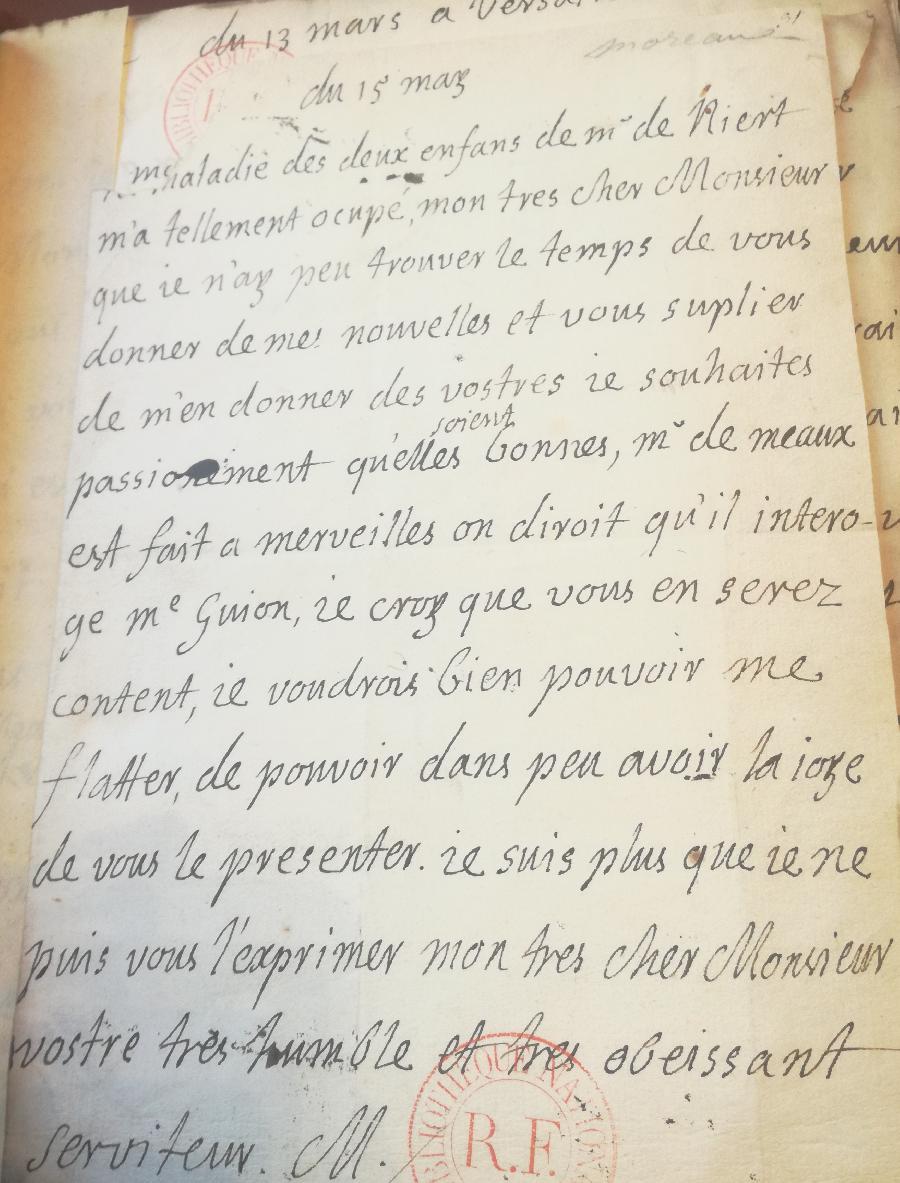 du 13 mars a Versai
moreau
du 15 may
maladie des deux enfans de mr de Niert
m'a tellement ocupé, mon tres cher Monsieur
que ie n'ay peu trouver le temps de vous
donner de mes nouvelles et vous suplier
de m'en donner des vostres ie souhaites
soient
passionément qu'elles bonnes, mr de meaux
est fait a merveilles on diroit qu'il intero-
ge me Guion, ie croy que vous en serez
content, ie voudrois bien pouvoir me
flatter, de pouvoir dans peu avoir la ioye
de vous le presenter. ie suis plus que ie ne
puis vous l'exprimer mon tres cher Monsieur
vostre tres humble et tres obeissant
serviteur. M.
BIBLIOTHEQUE NATIONALE
R.F.